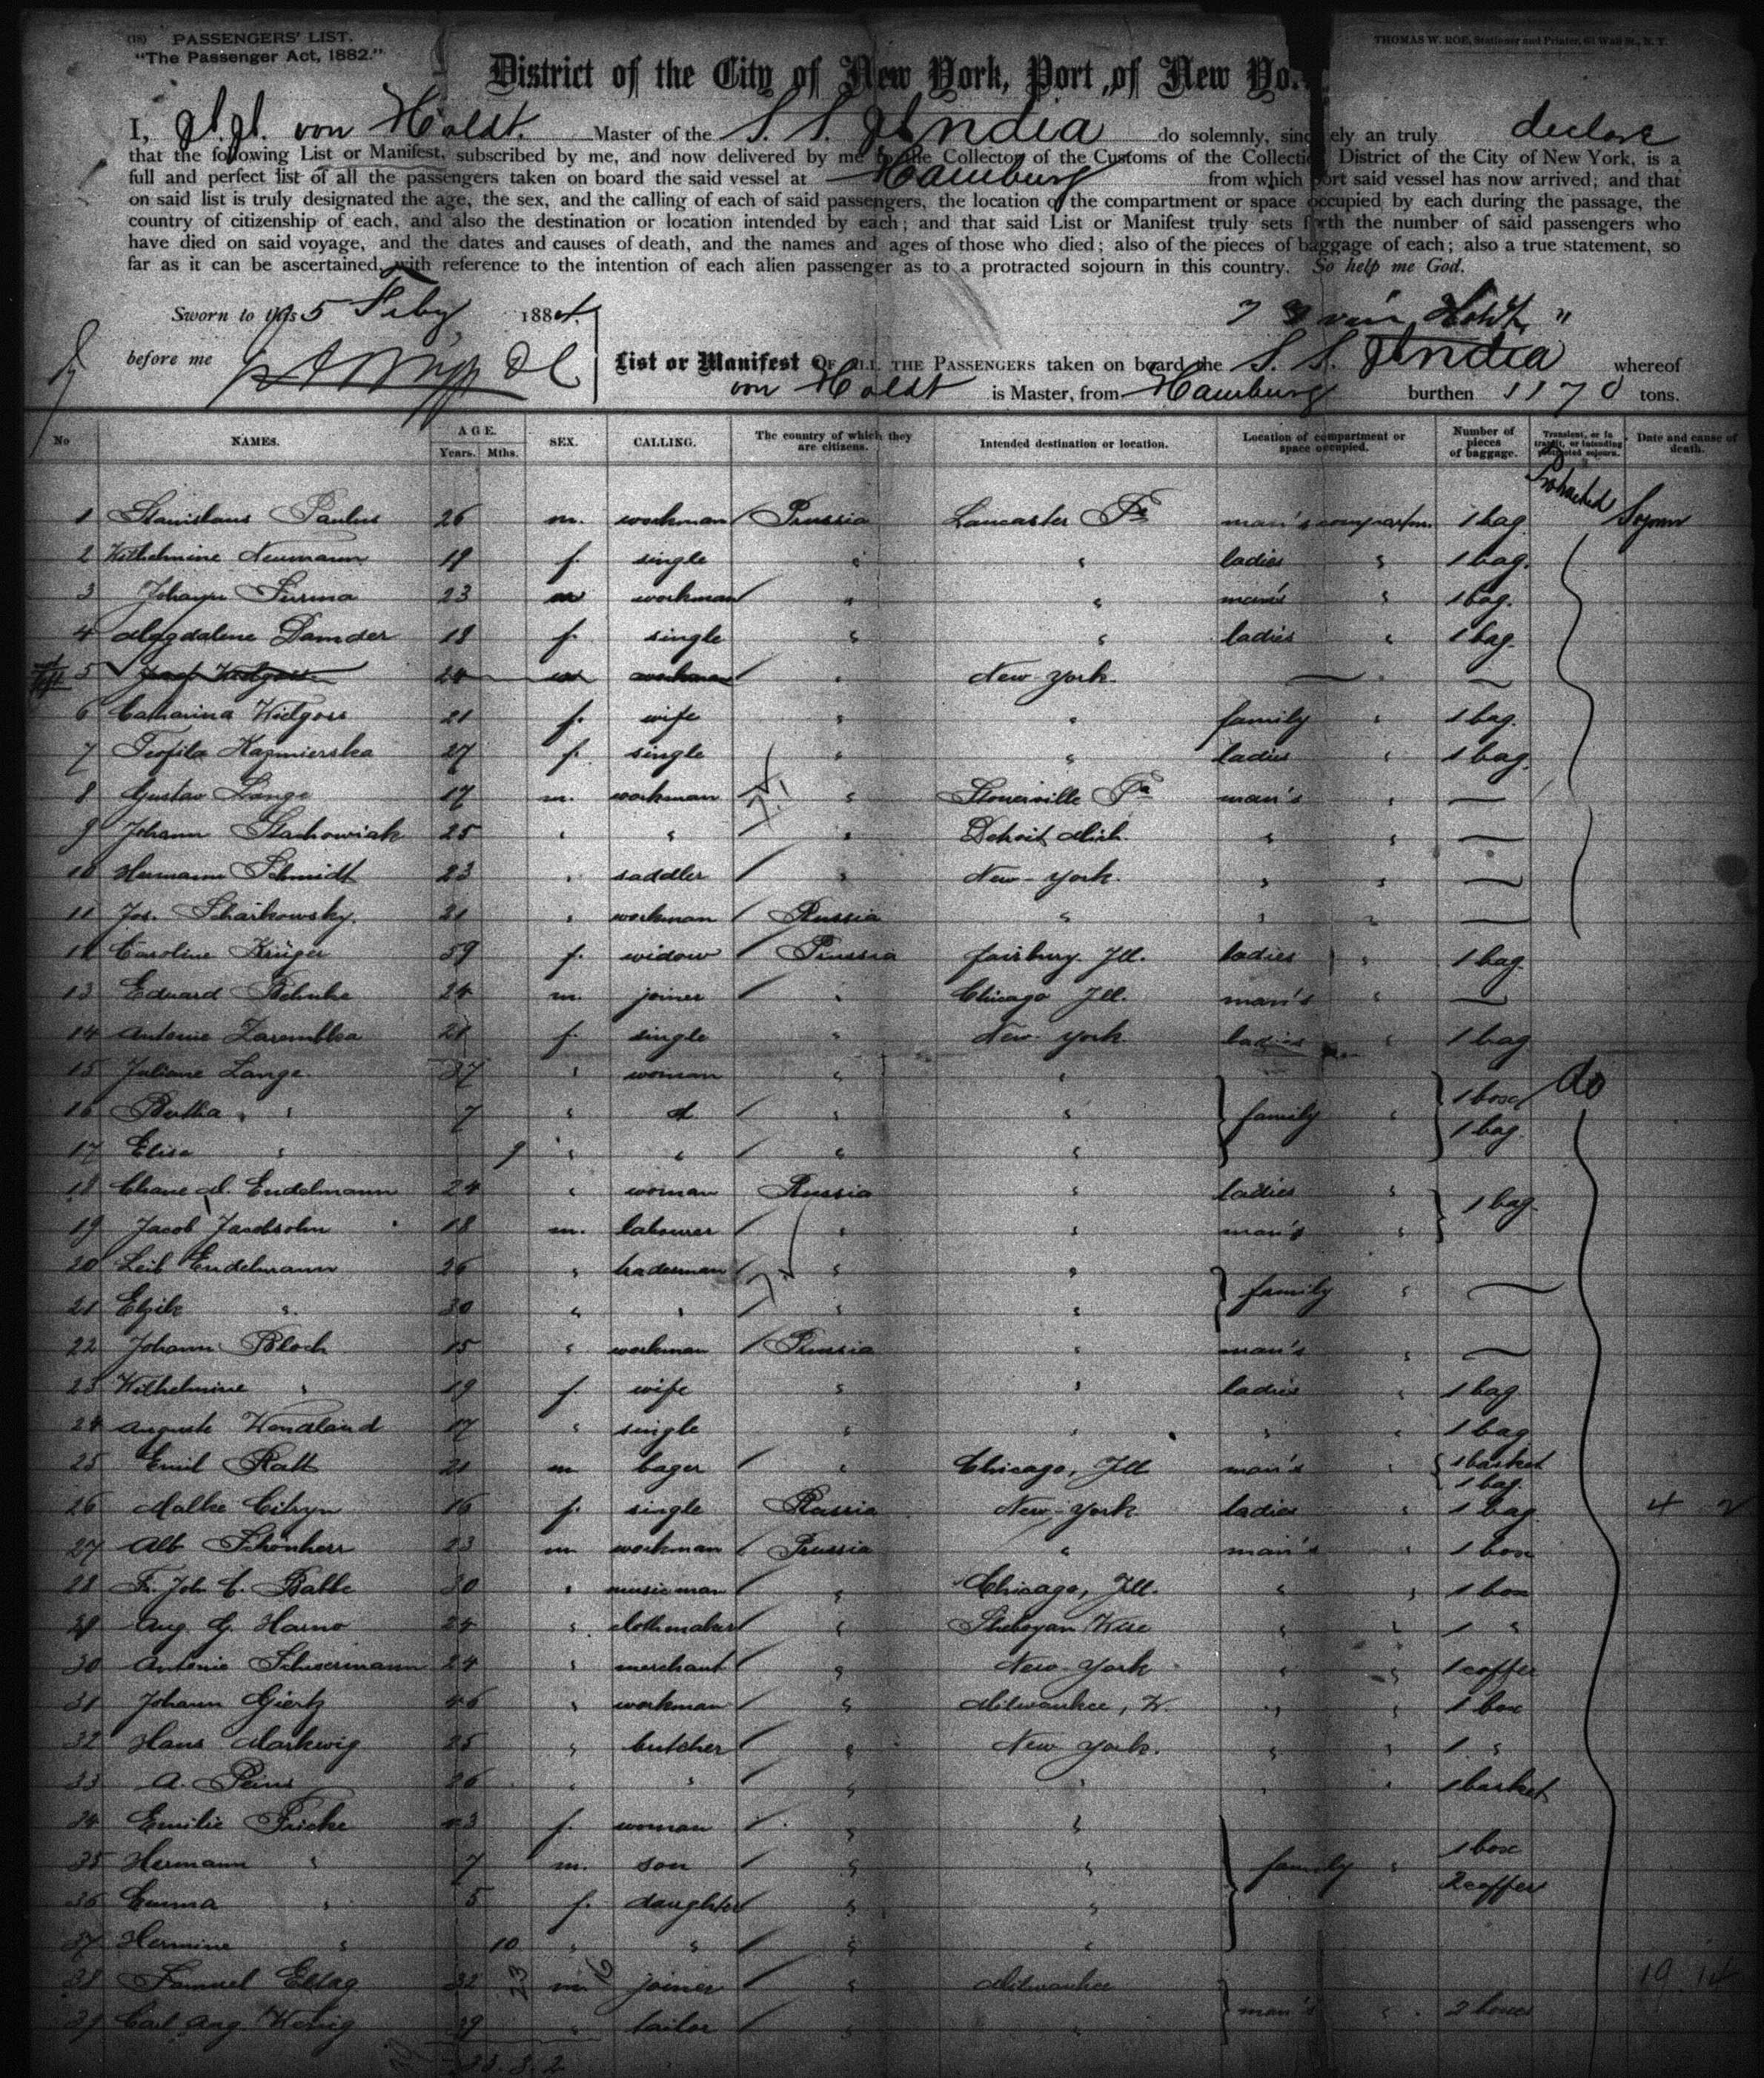 (18) PASSENGERS' LIST.
"The Passenger Act, 1882."
THOMAS W. ROE, Stationer and Printer, 61 Wall St., N. Y.
District of the City of New York, Port of New Yo
I, von Holdt. Master of the S. S. India do solemnly, sincerely an truly declare
that the following List or Manifest, subscribed by me, and now delivered by me to the Collector of the Customs of the Collection District of the City of New York, is a
full and perfect list of all the passengers taken on board the said vessel at Hamburg from which port said vessel has now arrived; and that
on said list is truly designated the age, the sex, and the calling of each of said passengers, the location of the compartment or space occupied by each during the passage, the
country of citizenship of each, and also the destination or location intended by each; and that said List or Manifest truly sets forth the number of said passengers who
have died on said voyage, and the dates and causes of death, and the names and ages of those who died; also of the pieces of baggage of each; also a true statement, so
far as it can be ascertained, with reference to the intention of each alien passenger as to a protracted sojourn in this country. So help me God.
Sworn to this 5 Feby 1884. von Holdt
before me
List or Manifest OF ALL THE PASSENGERS taken on board the S. S. India whereof
von Holdt is Master, from Hamburg burthen 1170 tons.
No NAMES. AGE. Years. Mths. SEX. CALLING. The country of which they are citizens. Intended destination or location. Location of compartment or space occupied. Number of pieces of baggage. Transient, or in transit, or intending protracted sojourn. Date and cause of death.
Protracted Sojourn
1 Stanislaus Paulus 26 m. workman Prussia Lancaster Pa man's compartm. 1 bag
2 Wilhelmine Neumann 19 f. single " " ladies " 1 bag.
3 Johann 23 m workman " " man's " 1 bag.
4 Magdalene Damder 18 f. single " " ladies " 1 bag.
5 24 m workman " New-York. — —
6 Catharina Widgoss 21 f. wife " " family " 1 bag.
7 Teofila Kazmierska 27 f. single " " ladies " 1 bag.
8 Gustav Lange 17 m. workman " Pa man's " —
9 Johann Stachowiak 25 " " " Detroit Mich. " " —
10 Hermann Schmidt 23 " saddler " New-York. " " —
11 Jos. Scharkowsky. 21 " workman Russia " " " —
12 Caroline Krüger 59 f. widow Prussia fairbury Ill. ladies " 1 bag.
13 Eduard Behnke 24 m. joiner " Chicago Ill. man's " —
14 Antonie Zaremblea 21 f. single " New-York ladies " 1 bag
15 Juliane Lange. 37 " woman " "
16 Bertha " 7 " d. " " family " 1 box 1 bag. do
17 Elise " 9 " " " "
18 Chane M. Endelmann 24 " woman Russia " ladies " 1 bag.
19 Jacob Jacobsohn 18 m. labourer " " man's "
20 Leib Endelmann 26 " tradesman " " family " —
21 Elzik " 30 " " " "
22 Johann Bloch 15 " workman Prussia " man's " —
23 Wilhelmine " 19 f. wife " " ladies " 1 bag
24 Auguste Wendland 17 " single " " " " 1 bag
25 Emil Ratt 21 m bager " Chicago, Ill man's " 1 basket 1 bag.
26 Malke Citryn 16 f. single Russia New-York. ladies " 1 bag. 4 2
27 Alb Schönherr 23 m workman Prussia " man's " 1 box
28 Fr. Joh. C. Babbe 30 " musicman " Chicago, Ill. " " 1 box
29 Aug. G. Harno 24 " clothmaker " Sheboygan Wisc " " 1 "
30 Antonio Schuermann 24 " merchant " New-York " " 1 coffer
31 Johann Giertz 46 " workman " Milwaukee, W. " " 1 box
32 Hans Markwig 25 " butcher " New York. " " 1 "
33 A. Peins 26 " " " " " " 1 basket
34 Emilie Fricke 43 f. woman " "
35 Hermann " 7 m. son " " family " 1 box 2 coffer
36 Emma " 5 f. daughter " "
37 Hermine " 10 " " " "
38 Samuel 32 23 m 16 joiner " Milwaukee 19 14
39 Carl Aug. König 29 " tailor " " man's " 2 boxes